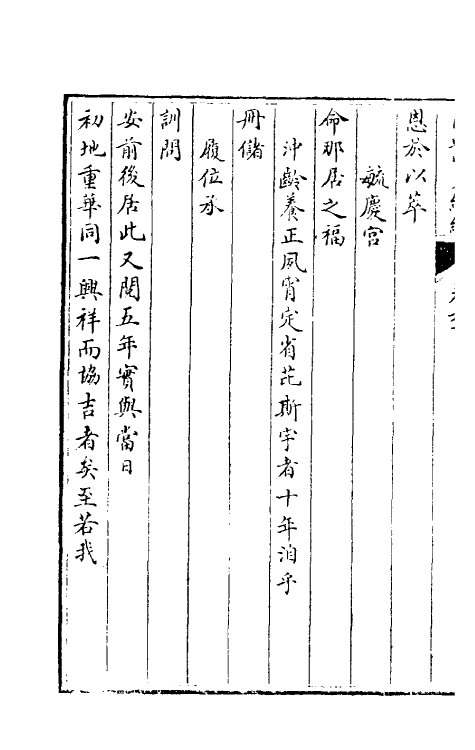 恩於以萃
毓慶宮
命那居之福
沖齡養正夙宵定省茈斯宇者十年洎乎
冊儲
履位承
訓問
安前後居此又閱五年實與當日
初地重華同一興祥而協吉者矣至若我